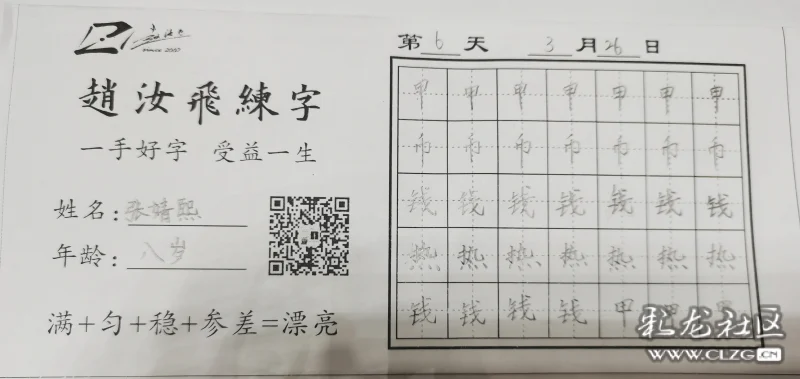 SINCE 2000
趙汝飛練字
一手好字 受益一生
姓名:张婧熙
年龄:八岁
满+匀+稳+参差=漂亮
第6天 3月26日
甲甲甲甲甲甲甲
币币币币币币币
钱钱钱钱钱钱钱
热热热热热热热
钱钱钱钱甲甲甲
彩龙社区
WWW.CLZG.CN